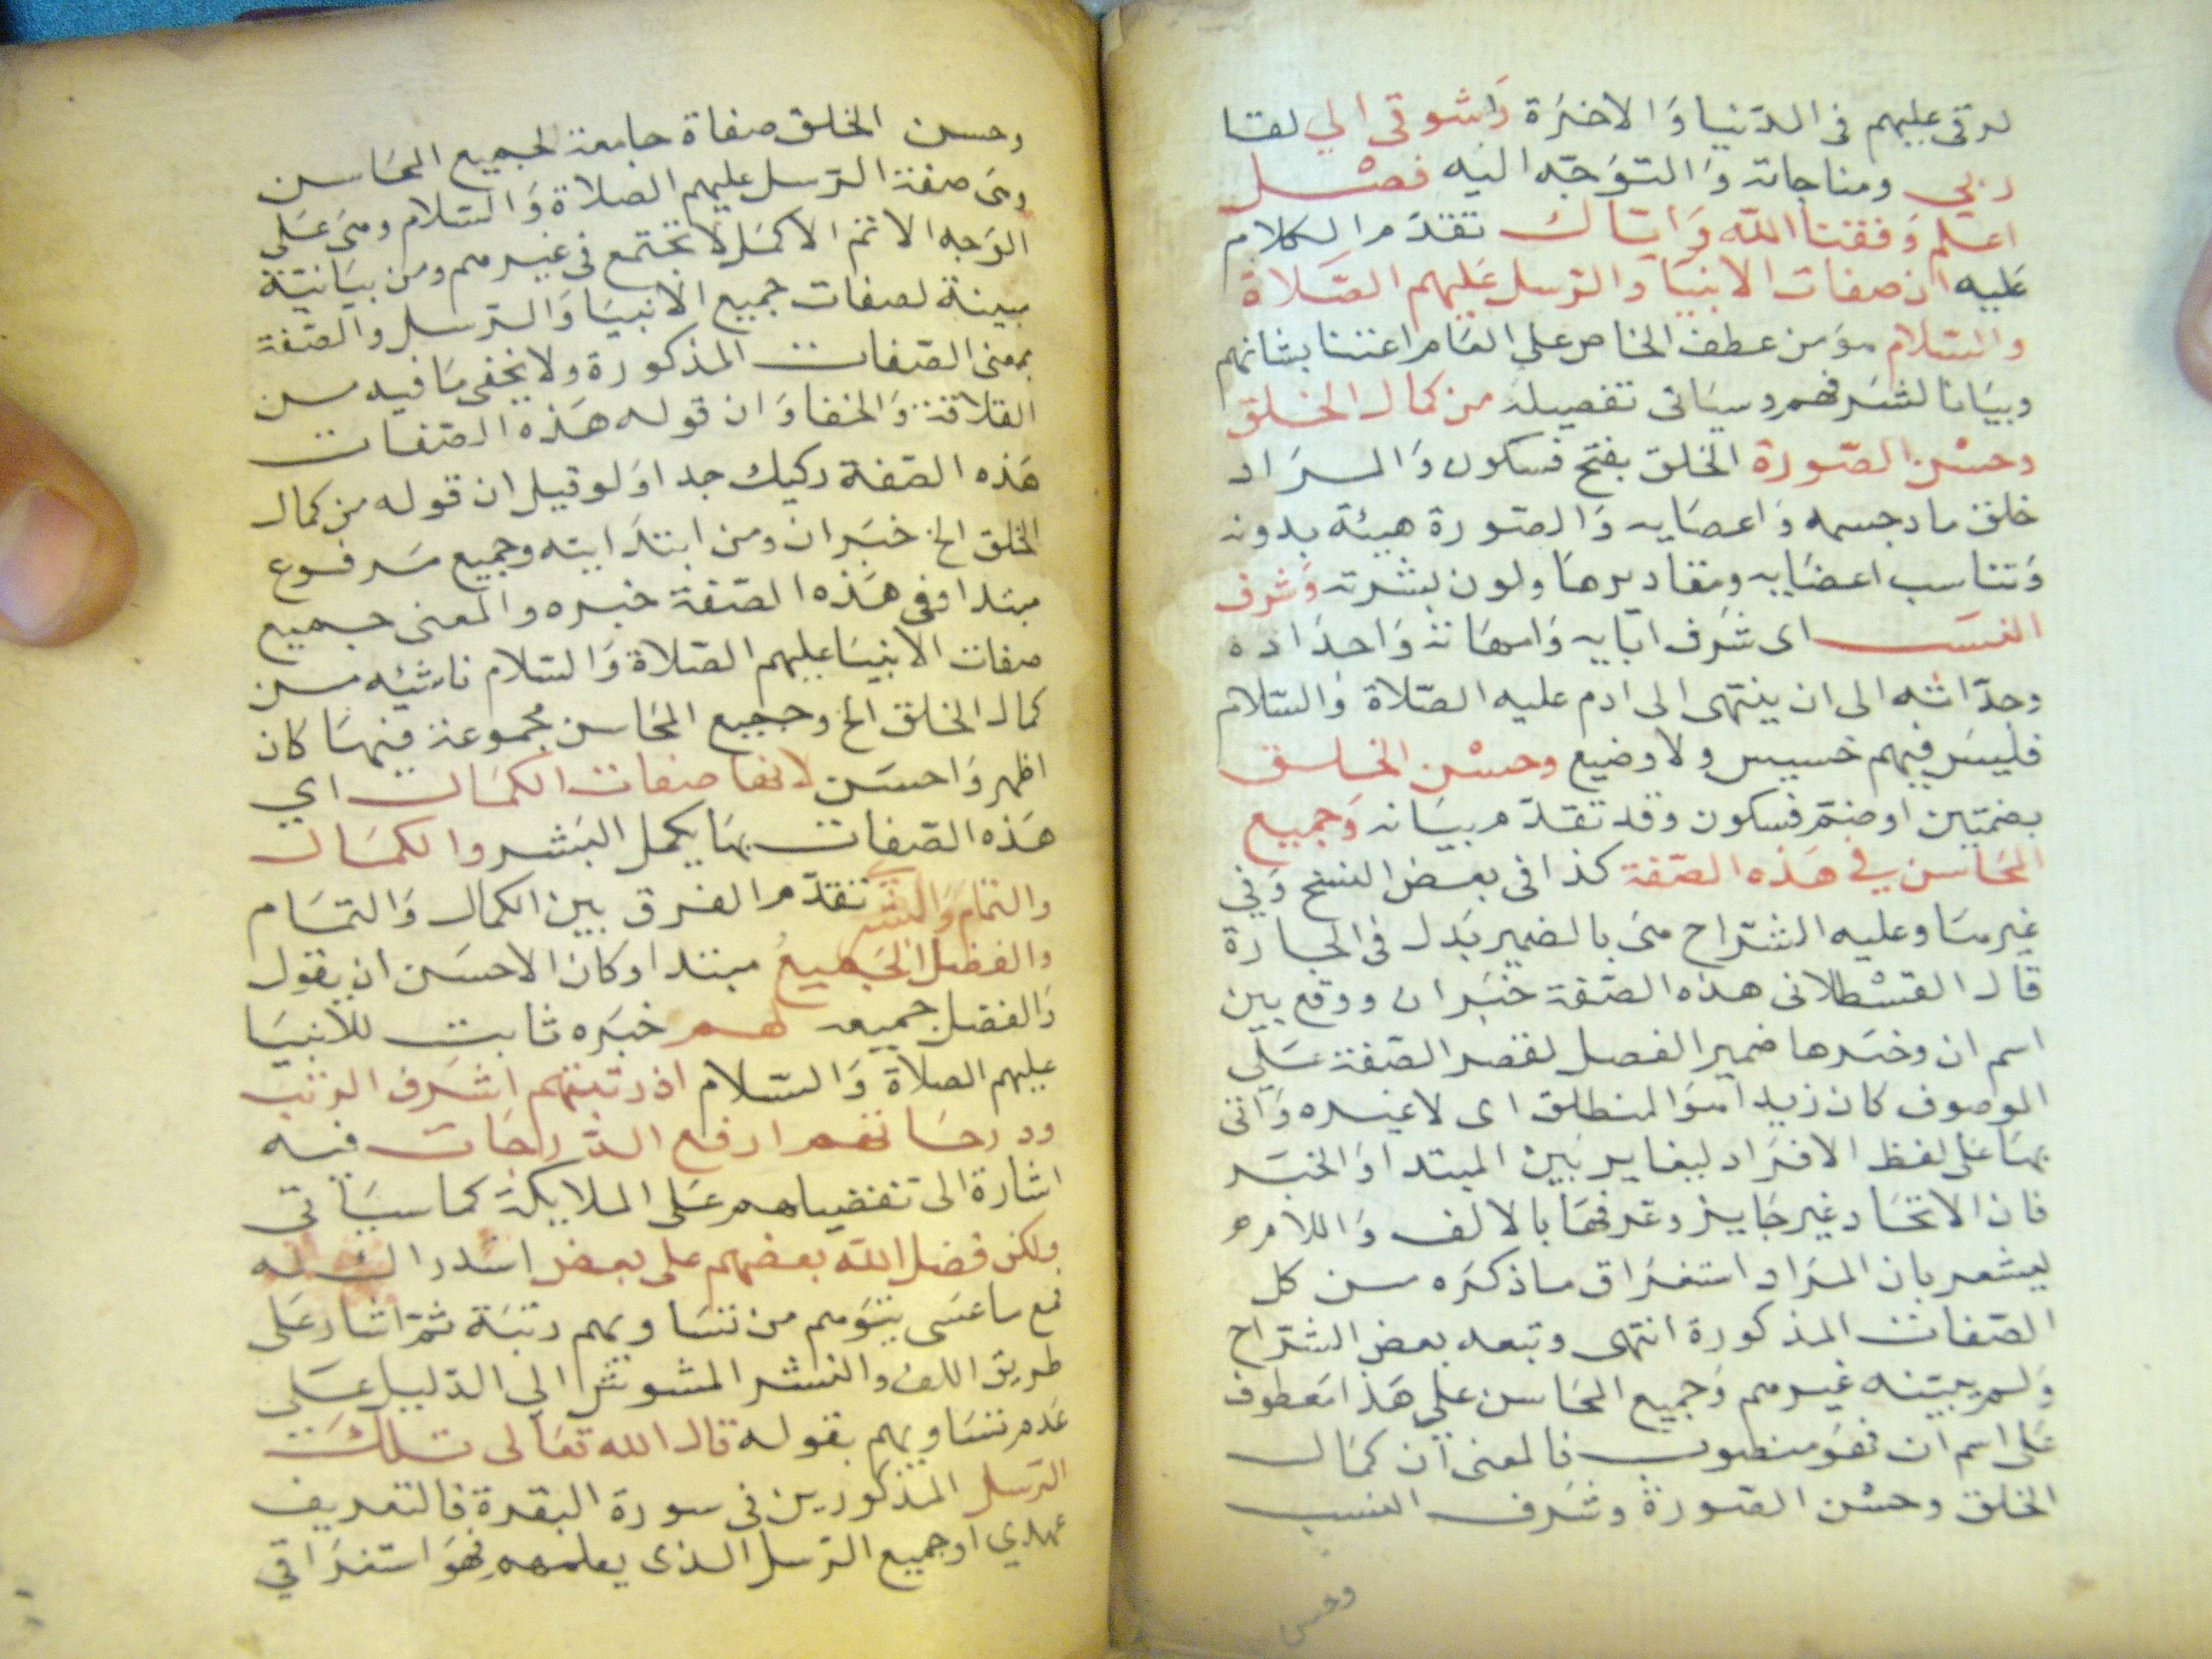 لرقى عليهم فى الدّنيا وَالاخرَة وَاشوقى الي لقا
ربي ومناجاته وَالتوَجّه اليه فصْل
اعلم وَفقنا الله وَايّاك تقدّم الكلام
عَليه ان صفات الانبيَا وَالرّسل عَليهم الصّلاة
والسّلام هوَ من عطف الخاص على العَام اعتنا بشانهم
وبيَانا لشرفهم وسيَاتى تفصيله من كمال الخلق
وحسْن الصّورة الخلق بفتح فسكون وَالمرَاد
خلق مادة جسمه وَاعضايه وَالصّورة هيئة بدونه
وَتناسب اعضَايه ومقاديرهَا ولون بشرته وَشرف
النسَب اى شَرف ابَايه وَامهَاته وَاجدَاده
وجدّاته الى ان ينتهى الى ادم عليه الصّلاة وَالسّلام
فليسَ فيهم خسيس ولا وضيع وحسْن الخلق
بضمتين اوضمّ فسكون وقد تقدّم بيَانه وَجميع
المحَاسن في هَذه الصّفة كذا فى بعض النسخ وَفي
غيرهَا وعليه الشرّاح هىَ بالضمير بَدل فى الجارة
قال القسْطلانى هذه الصّفة خبَر ان ووقع بين
اسم ان وخبَرها ضمير الفصل لقصر الصّفة عَلَى
الموصوف كان زيدا هوَ المنطلق اى لا غيره وَاتى
بهَا عَلى لفظ الافرَاد ليغاير بَين المبتدا وَالخبَر
فان الاتحَاد غير جَايز وعَرفهَا بالالف وَاللام
ليشعر بان المرَاد استغرَاق ماذكرَه من كل
الصّفات المذكورة انتهى وتبعه بعض الشرّاح
وَلم يبيّنه غيرهم وَجميع المحَاسن على هَذا مَعطوف
عَلى اسم ان فهوَ منصوب فالمعنى ان كمَال
الخلق وحسْن الصّورة وشرَف النسب
وحسن
وحسن الخلق صفاة جامعة لجميع المحَاسن
وهىَ صفة الرّسل عليهم الصلاة وَالسّلام وهىَ عَلى
الوَجه الاتم الاكمَل لا تجتمع فى غيرهم ومن بيَانيّة
مبينة لصفات جميع الانبيَا وَالرّسل والصّفة
بمعنى الصّفات المذكورة ولا يخفى مَا فيه من
القلاقة وَالخفا وَان قوله هَذه الصّفات
هَذه الصّفة ركيك جدا وَلو قيل ان قوله من كمال
الخلق الخ خبَر ان ومن ابتدَايته وجميع مَرفوع
مبتدا وفى هَذه الصّفة خبره والمعنى جميع
صفات الانبيَا عليهم الصّلاة وَالسّلام ناشئه من
كمال الخلق الخ وجميع المحَاسن مجموعة فيهَا كان
اظهر وَاحسَن لانها صفات الكمَال اي
هَذه الصّفات بهَا يكمل البَشر والكمَال
والتمام وَالبشر تقدّم الفرق بين الكمال وَالتمَام
والفضل الجَميعُ مبتدا وكان الاحسَن ان يقول
وَالفضل جميعه لهم خبَره ثابت للانبيَا
عليهم الصلاة وَالسّلام اذ رتبتهم اشرَف الرتب
ودرجَاتهم ارفع الدّرجَات فيه
اشارة الى تفضيلهم عَلى الملايكة كما سيَاتى
ولكن فضل الله بعضهم على بعض استدراك له
فمع ما عسَى يتوَهم من تسَاويهم رتبَة ثمّ اشار عَلى
طريق اللف والنشر المشوش الى الدّليل عَلى
عَدم تسَاويهم بقوله قال الله تعَالى تلكَ
الرّسل المذكورين فى سورة البقرة فالتعريف
عهدي اوجميع الرّسل الذى يعلمهم فهوَ استغرَاقي